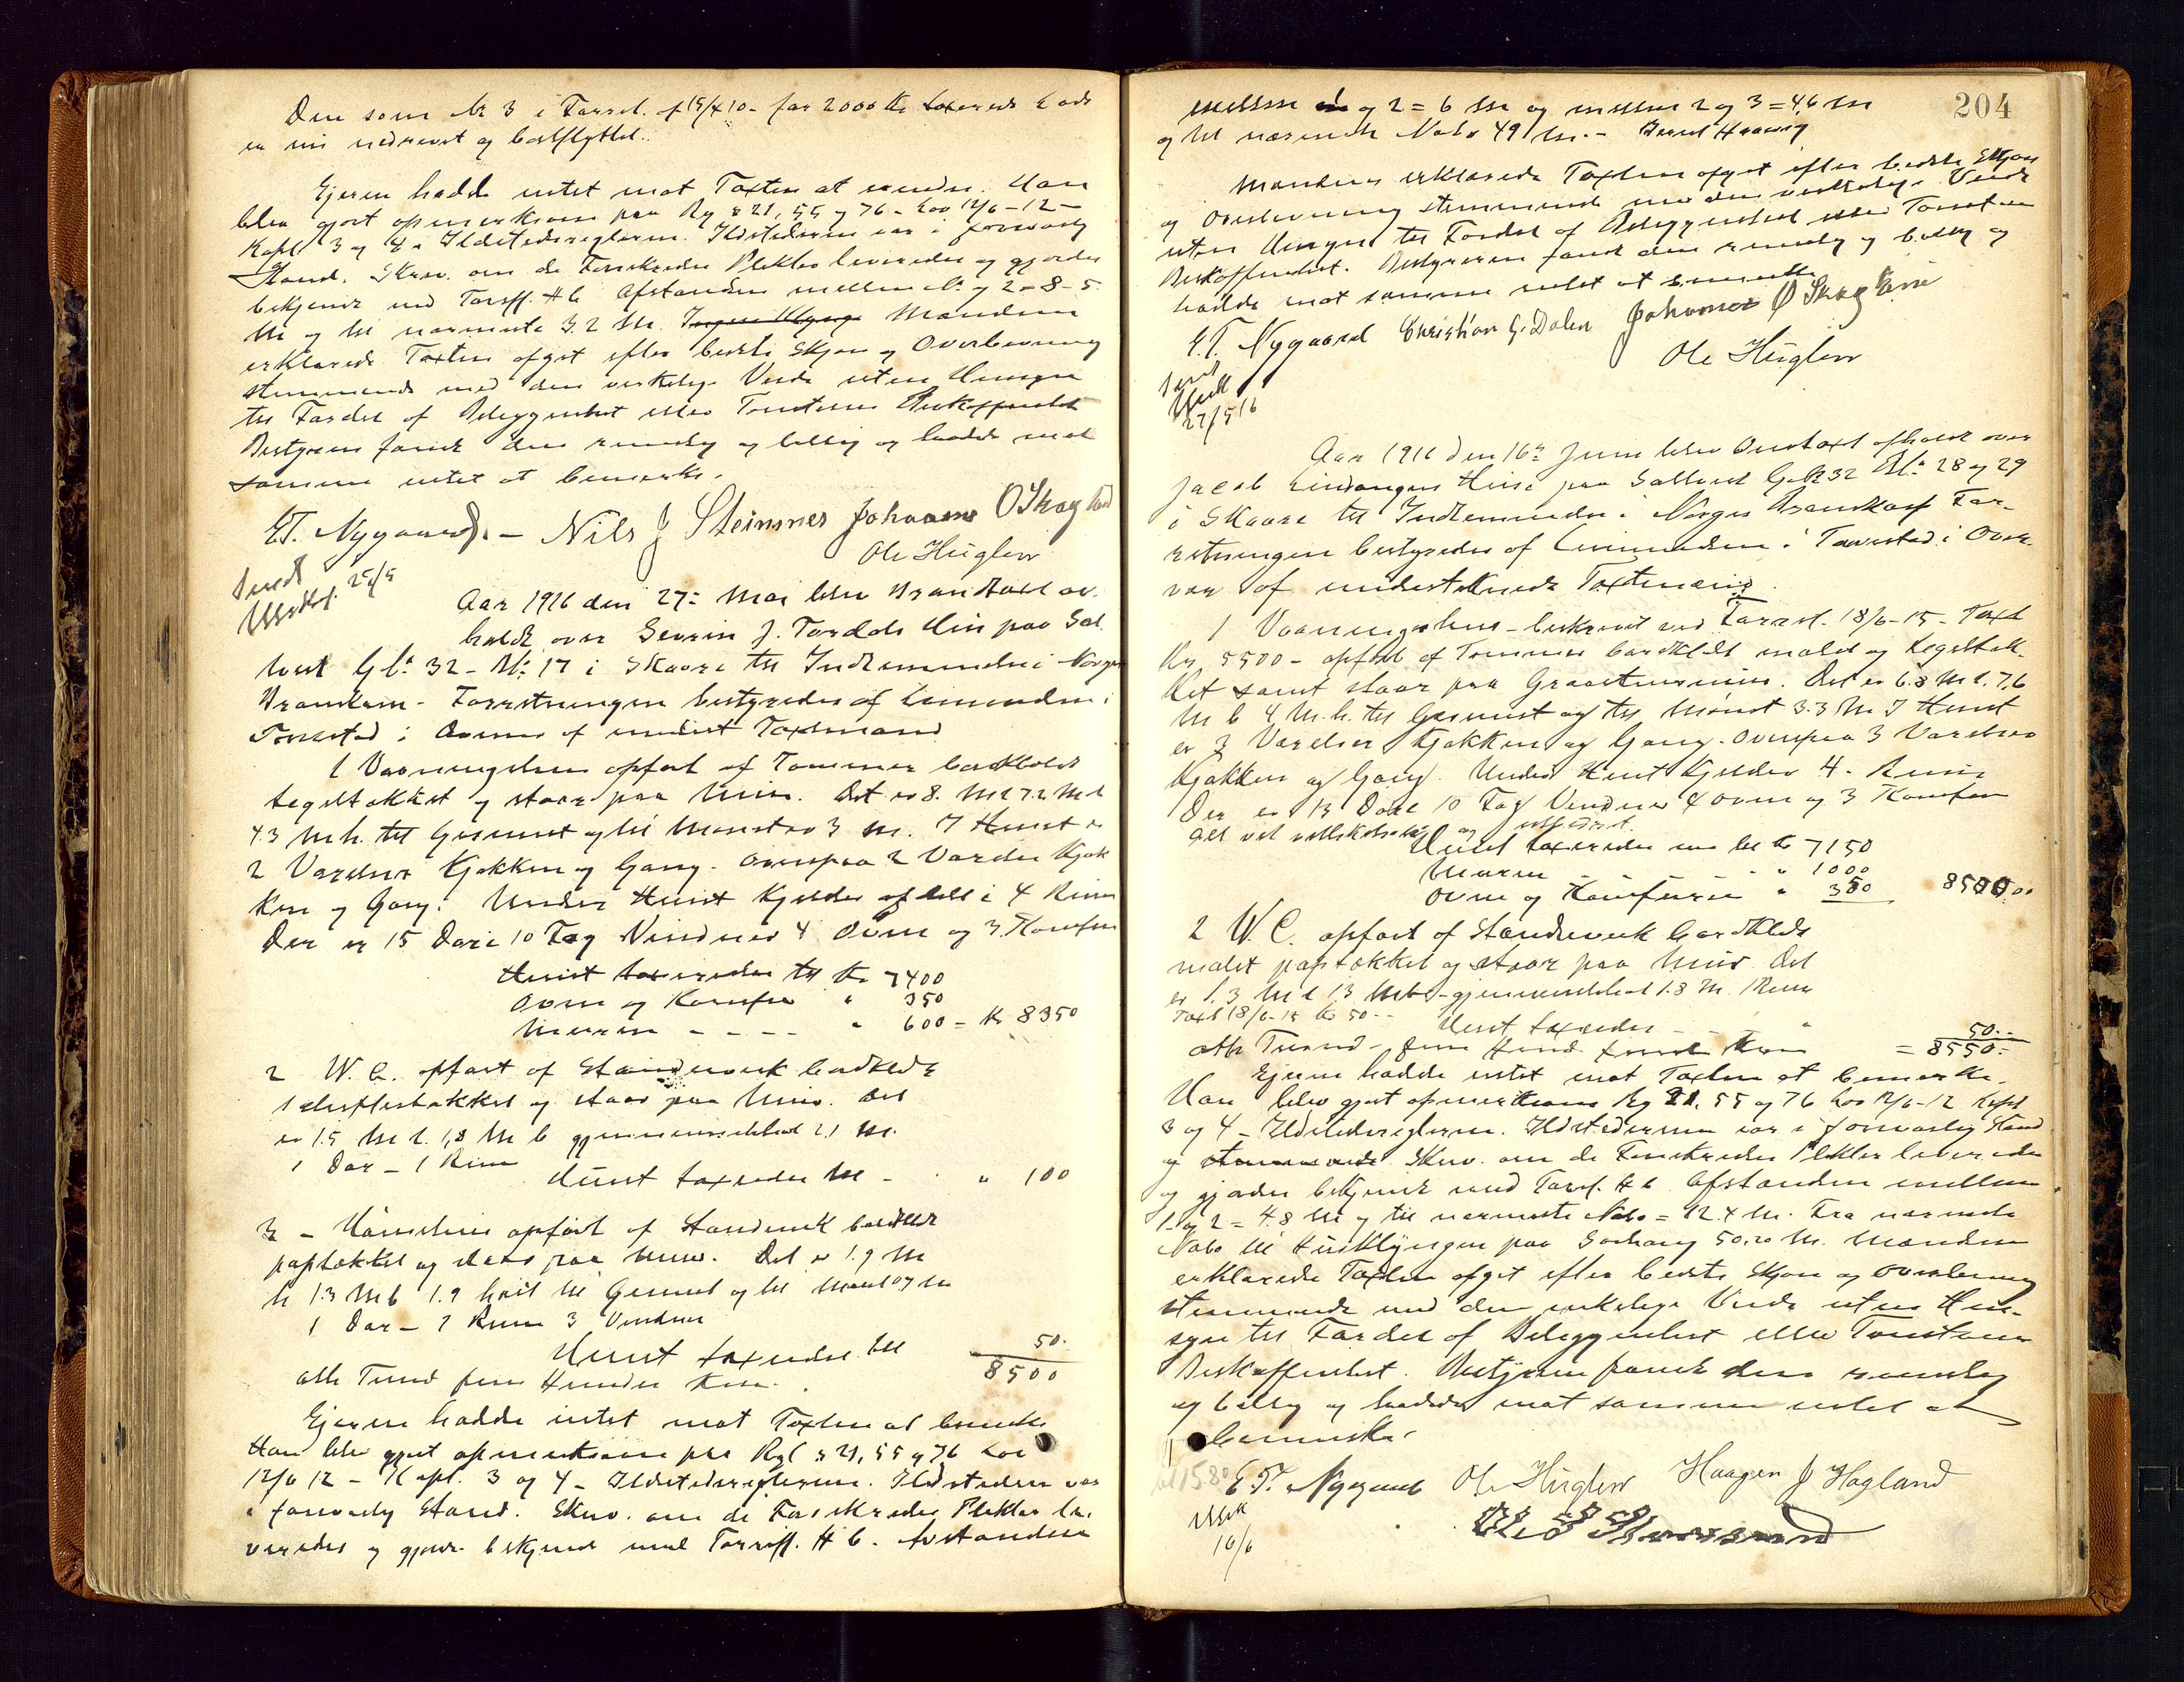 Den som № 3 i Forret. af 15/4 10 - for 2000 Kr taxerede Lade
er nu nedrevet og bortflyttet.
Ejeren hadde intet mot Taxten at erindre. Han
blev gjort opmerksom paa Rg § 21, 55 og 76 - Lov 12/6-12 -
Kapl 3 og 4 - Ildstedsreglerne. Ildstederne var i forsvarlig
Stand. Skriv. om de Forsikredes Plikter leveredes og gjordes
bekjendt med Tarif. H6 Afstanden mellem 1 og 2 = 8-5
M og til nærmeste 32 M. Mændene
erklærede Taxten afgit efter bedste Skjøn og Overbevisning
stemmende med den virkelige Verdi uten Hensyn
til Fordel af Beliggenhet eller Tomtens Beskaffenhet
Bestyreren fandt den rimelig og billig og hadde mot
samme intet at bemerke.
E.T. Nygaard. - Nils J Steinsnes Johannes O Skog
Ole Hüglen
Sendt
25/5
Aar 1916 den 27de Mai blev Brandtaxt av-
holdt over Severin J. Tordals Hus paa Sal-
hust Gb: 32 - Bb: 17 i Skaare til Indlemmelse i Norges
Brandkasse - Forretningen bestyredes af Lensmanden i
Torvestad i Overvær af undert Taxtmænd
1 Vaaningshus opført af Tømmer bordklædt
teglstækket og staar paa Mur. Det er 8. M l 7.2 M b
4.3 M h. til Gesimst og til Mønstre 3 M. I Huset er
2 Værelser Kjøkken og Gang. Ovenpaa 2 Værelser Kjøk
ken og Gang. Under Huset Kjelder af delt i 4 Rum
Der er 15 Døre 10 Fag Vinduer 4 Ovne og 3 Komfur
Huset taxeredes til Kr 7400
Ovne og Komfur " 350
Muren - - - - " 600 = Kr 8350
2 W. C. opført af Standerverk bordklædt
skifertækket og staar paa Mur. Det
er 1.5 M l. 1,8 M b gjennemsnitshøit 2,1 M.
1 Dør - 1 Rum
Huset taxeredes til - " 100
3 - Hønsehus opført af Standerverk bordklædt
paptækket og staar paa Mur. Det er 1.9 M
l 1.3 M b 1.9 høit til Gesimst og til Mønst 0,7 M
1 Dør - 1 Rum 3 Vinduer
Huset taxeredes til 50.
otte Tusind fem Hundre Kron. 8500
Ejeren hadde intet mot Taxten at bemerke
Han blev gjort opmerksom paa Rgl § 21, 55 og 76 Lov
12/6 12 - Kapl. 3 og 4 - Ildstedsreglerne. Ildstedene var
i forsvarlig Stand. Skriv. om de Forsikredes Plikter le-
veredes og gjordes bekjendt med Tariff. H 6. Avstanden
204
mellem 1 og 2 = 6 M og mellem 2 og 3 = 4,6 M
og til nærmeste Nabo 49 M. -
Mændene erklærede Taxten afgit efter bedste Skjøn
og Overbevisning stemmende med den virkelige Verdi
uten Hensyn til Fordel af Beliggenhed eller Tomtens
Beskaffenhet. Bestyreren fandt den rimelig og billig og
hadde mot samme intet at bemerke
E.T. Nygaard Christian G. Dalen Johannes O Skog
Ole Hüglen
Sendt
27/5 16
Aar 1916 den 16de Juni blev Omtaxt afholdt over
Jacob Lindanger Huse paa Salhust Gb 32 Bb: 28 og 29
i Skaare til Indlemmelse i Norges Brandkasse For-
retningen bestyredes af Lensmanden i Torvestad i Over-
vær af undertegnede Taxtmænd.
1 Vaaningshus - beskrevet ved Forret. 18/6-15 - Taxt
Kr 5500 - opført af Tømmer bordklædt malet og teglstæk-
ket samt staar paa Graastensmur. Det er 6.8 M l. 7,6
M b 4 M. h. til Gesimst og til Mønst 3.3 M I Huset
er 3 Værelser Kjøkken og Gang. Ovenpaa 3 Værelser
Kjøkken og Gang. Under Huset Kjelder 4. Rum
Der er 13 Døre 10 Fag Vinduer 4 Ovne og 3 Komfur
alt vel vedlikeholdt og
Huset taxeredes nu til Kr 7150
Muren - " 1000
Ovne og Komfurer " 350 8500,00
2 W. C. opført af Standerverk bordklædt
malet paptækket og staar paa Mur. Det
er 1.3 M l 1.3 M b - gjennemsnitshøit 1.8 M. 1 Rum
Taxt 18/6-15 Kr 50 --
Huset taxeredes - - " 50.--
otte Tusind - fem Hund. Kron = 8550.-
Ejeren hadde intet mot Taxten at bemerke.
Han blev gjort opmerksom Rg 21, 55 og 76 Lov 12/6-12 Kapl
3 og 4 - Ildstedsreglerne. Ildstederne var i forsvarlig Stand
og Skriv. om de Forsikredes Plikter leveredes
og gjordes bekjendt med Tarif. H 6 Afstanden mellem
1 og 2 = 4.8 M og til nærmeste Nabo = 12.4 M. Fra nærmeste
Nabo til Husklyngen paa Sørhaug 50,20 M. Mændene
erklærede Taxten afgit efter bedste Skjøn og Overbevisning
stemmende med den virkelige Verdi uten Hen-
syn til Fordel af Beliggenhet eller Tomtens
Beskaffenhet. Bestyreren fandt den rimelig
og billig og hadde mot samme intet at
bemerke.
E.T. Nygaard Ole Hüglen Haagen J Hagland
16/6